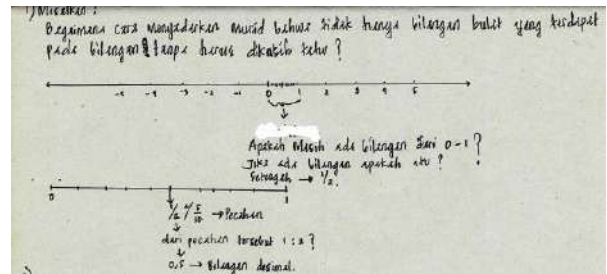 1) Misalkan :
Bagaimana cara menyadarkan murid bahwa tidak hanya bilangan bulat yang terdapat
pada bilangan tanpa harus dikasih tahu ?
-5 -4 -3 -2 -1 0 1 2 3 4 5
Apakah Masih ada bilangan dari 0 - 1 ?
Jika ada bilangan apakah itu ?
Setengah → 1/2.
0 1
1/2 5/10 → Pecahan
dari pecahan tersebut 1 : 2 ?
0,5 → Bilangan desimal.